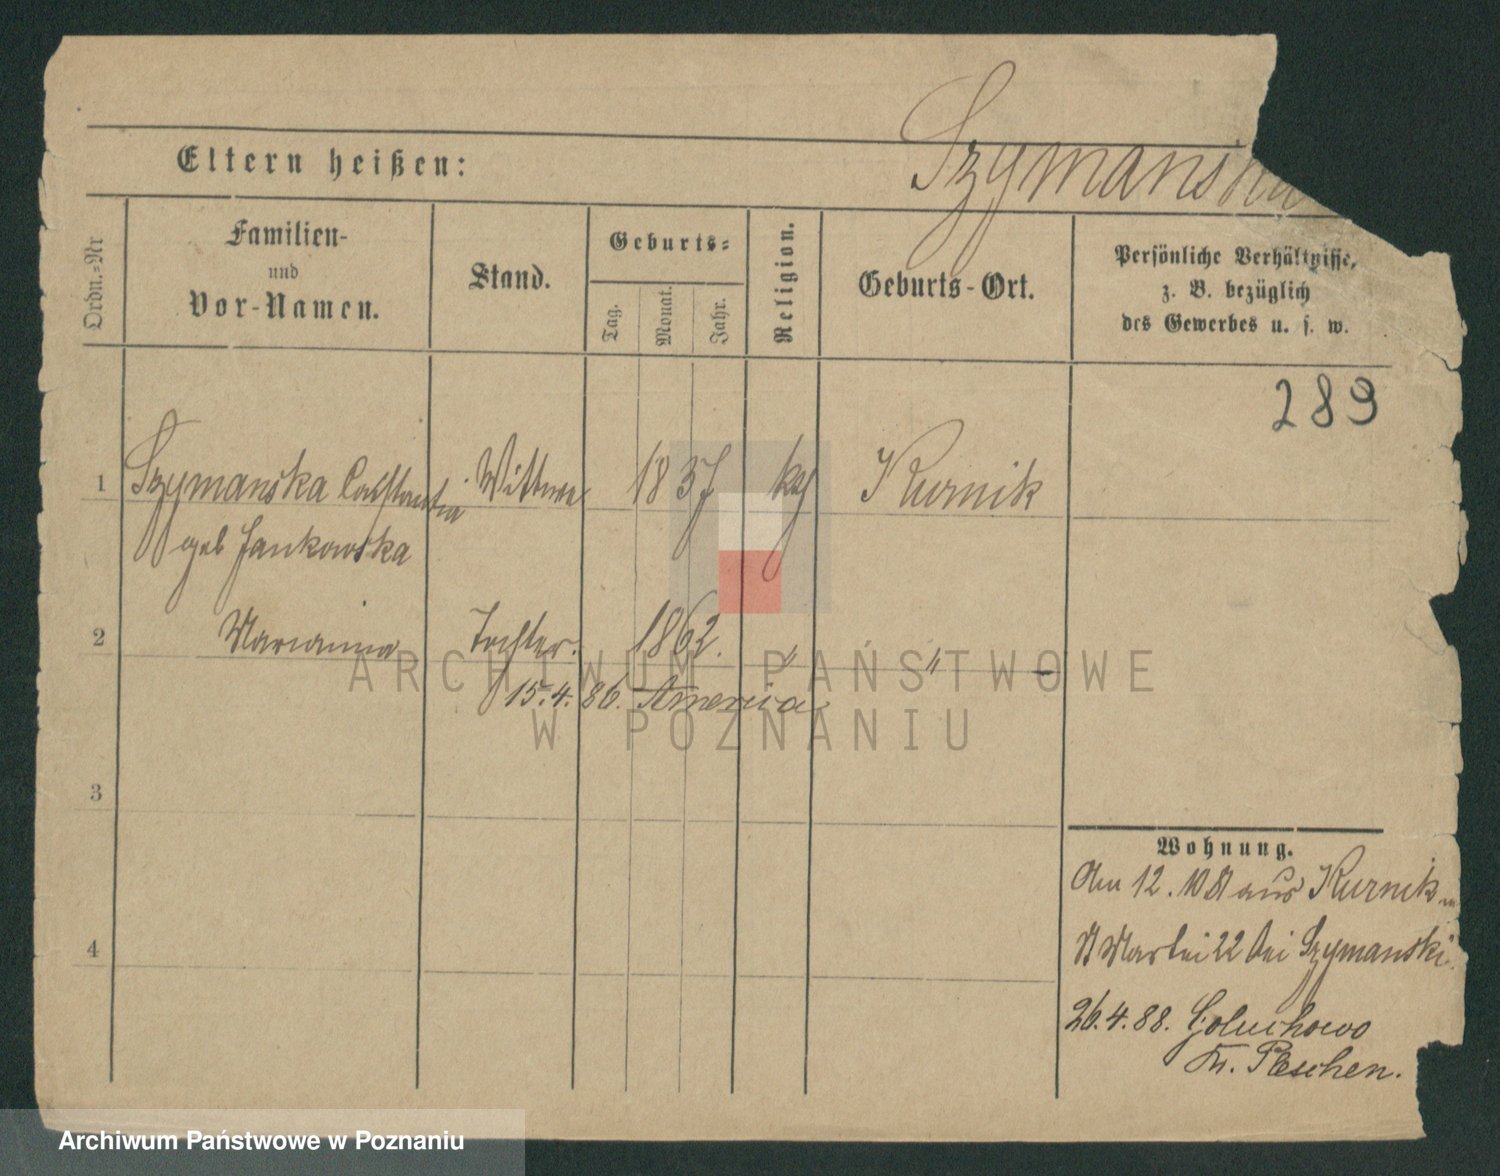 Szymanska
Eltern heißen:
Ordn.=Nr
Familien-
und
Vor-Namen.
Stand.
Geburts=
Tag.
Monat.
Jahr.
Religion.
Geburts-Ort.
Persönliche Verhältnisse,
z. B. bezüglich
des Gewerbes u. s. w.
289
1 Szymanska Wittwe 1837 Kurnik
geb Jankowska
2 Marianna Tochter. 1862. " "
15.4.86. America
3
4
Wohnung.
Am 12. 10 81 aus Kurnik
22 bei Szymanski
26.4.88. Goluchowo
Kr. Pleschen.
ARCHIWUM PAŃSTWOWE
W POZNANIU
Archiwum Państwowe w Poznaniu